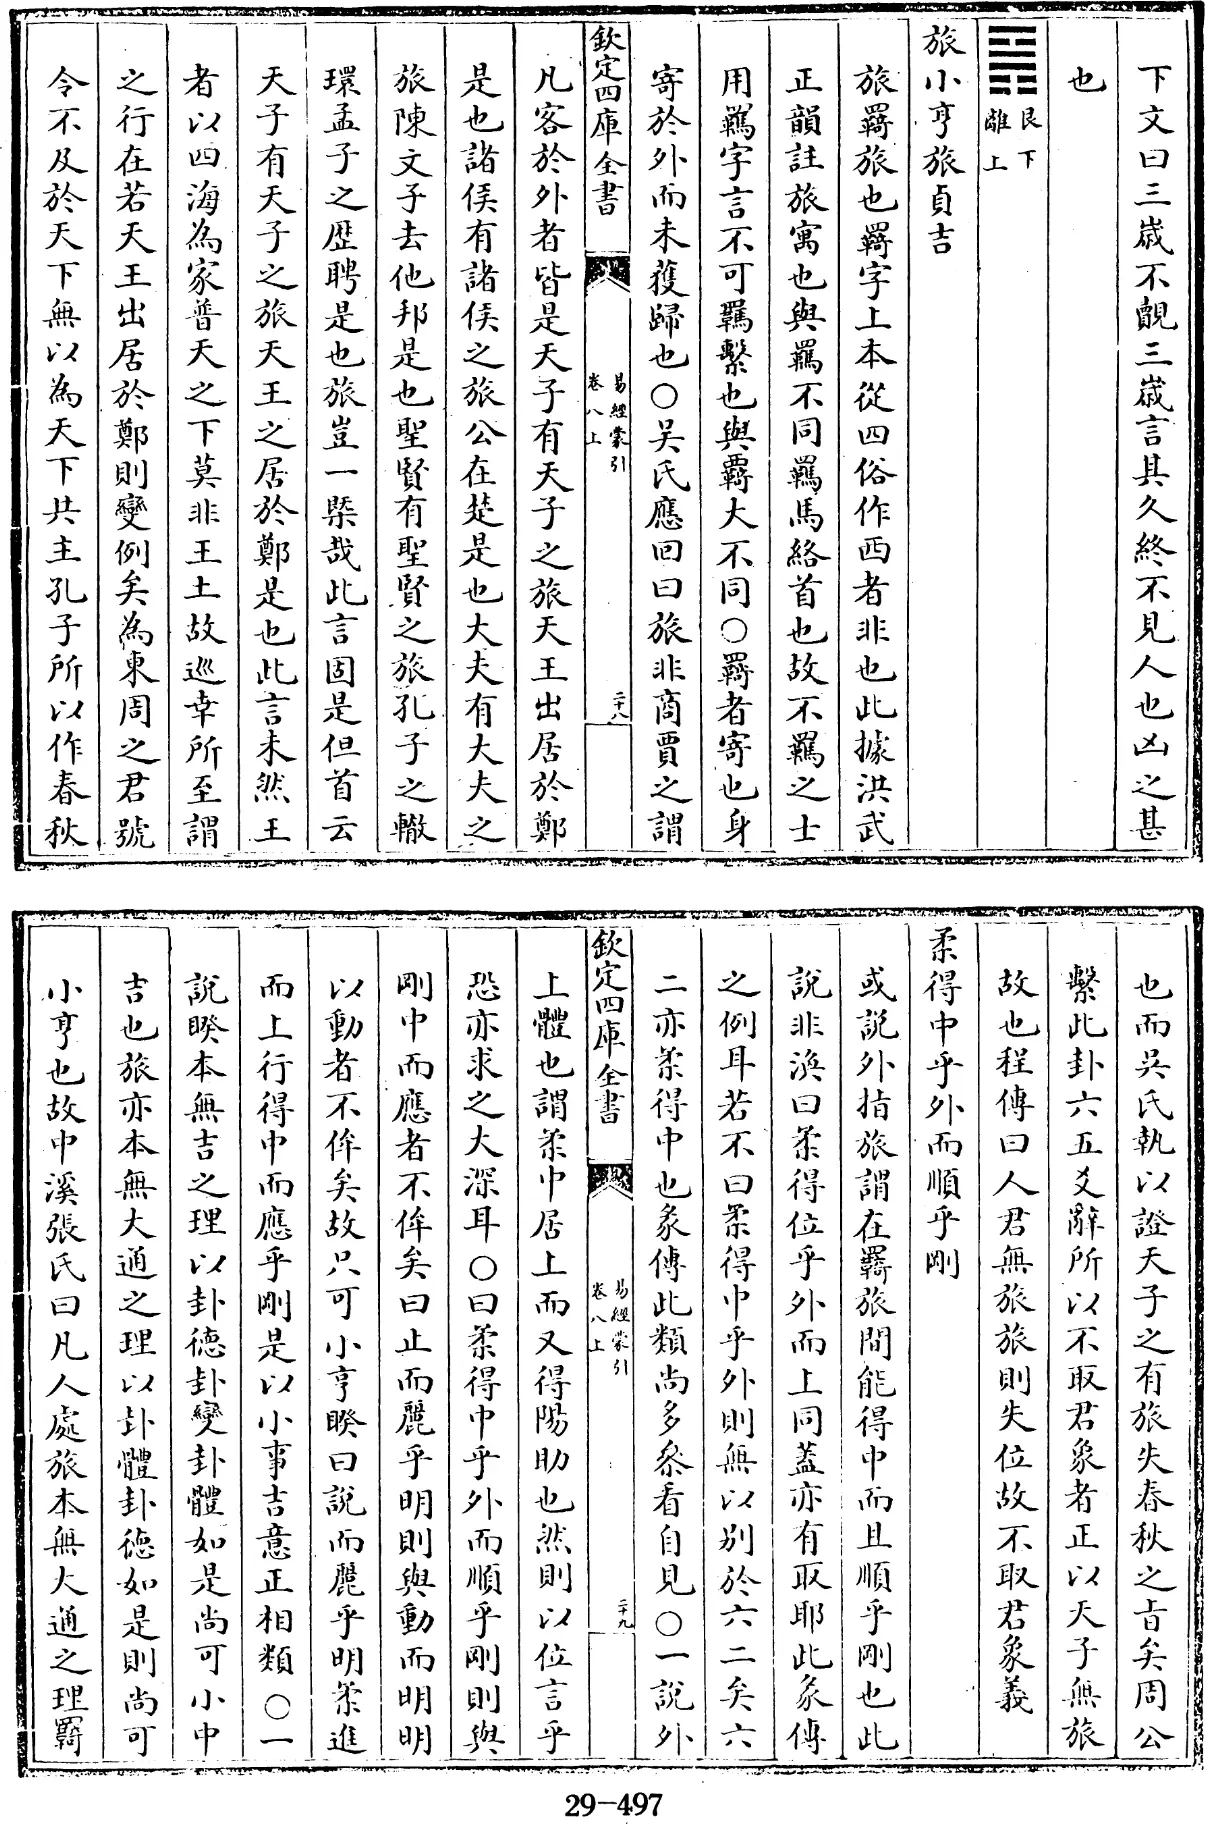 下文曰三歲不覿三歲言其久終不見人也凶之甚
也
艮下
離上
旅小亨旅貞吉
旅羇旅也羇字上本從四俗作西者非也此據洪武
正韻註旅寓也與羈不同羈馬絡首也故不羈之士
用羈字言不可羈繫也與覊大不同○羇者寄也身
寄於外而未獲歸也○吴氏應回曰旅非商賈之謂
欽定四庫全書
易經蒙引
卷八上
二十八
凡客於外者皆是天子有天子之旅天王出居於鄭
是也諸侯有諸侯之旅公在楚是也大夫有大夫之
旅陳文子去他邦是也聖賢有聖賢之旅孔子之轍
環孟子之歴聘是也旅豈一槩哉此言固是但首云
天子有天子之旅天王之居於鄭是也此言未然王
者以四海為家普天之下莫非王土故巡幸所至謂
之行在若天王出居於鄭則變例矣為東周之君號
令不及於天下無以為天下共主孔子所以作春秋
也而吴氏執以證天子之有旅失春秋之旨矣周公
繫此卦六五爻辭所以不取君象者正以天子無旅
故也程傳曰人君無旅旅則失位故不取君象義
柔得中乎外而順乎剛
或説外指旅謂在羇旅間能得中而且順乎剛也此
説非渙曰柔得位乎外而上同蓋亦有取耶此彖傳
之例耳若不曰柔得中乎外則無以别於六二矣六
二亦柔得中也彖傳此類尚多叅看自見○一説外
欽定四庫全書
易經蒙引
卷八上
二十九
上體也謂柔中居上而又得陽助也然則以位言乎
恐亦求之大深耳○曰柔得中乎外而順乎剛則與
剛中而應者不侔矣曰止而麗乎明則與動而明明
以動者不侔矣故只可小亨睽曰説而麗乎明柔進
而上行得中而應乎剛是以小事吉意正相類○一
説睽本無吉之理以卦德卦變卦體如是尚可小中
吉也旅亦本無大通之理以卦體卦德如是則尚可
小亨也故中溪張氏曰凡人處旅本無大通之理羇
29-497